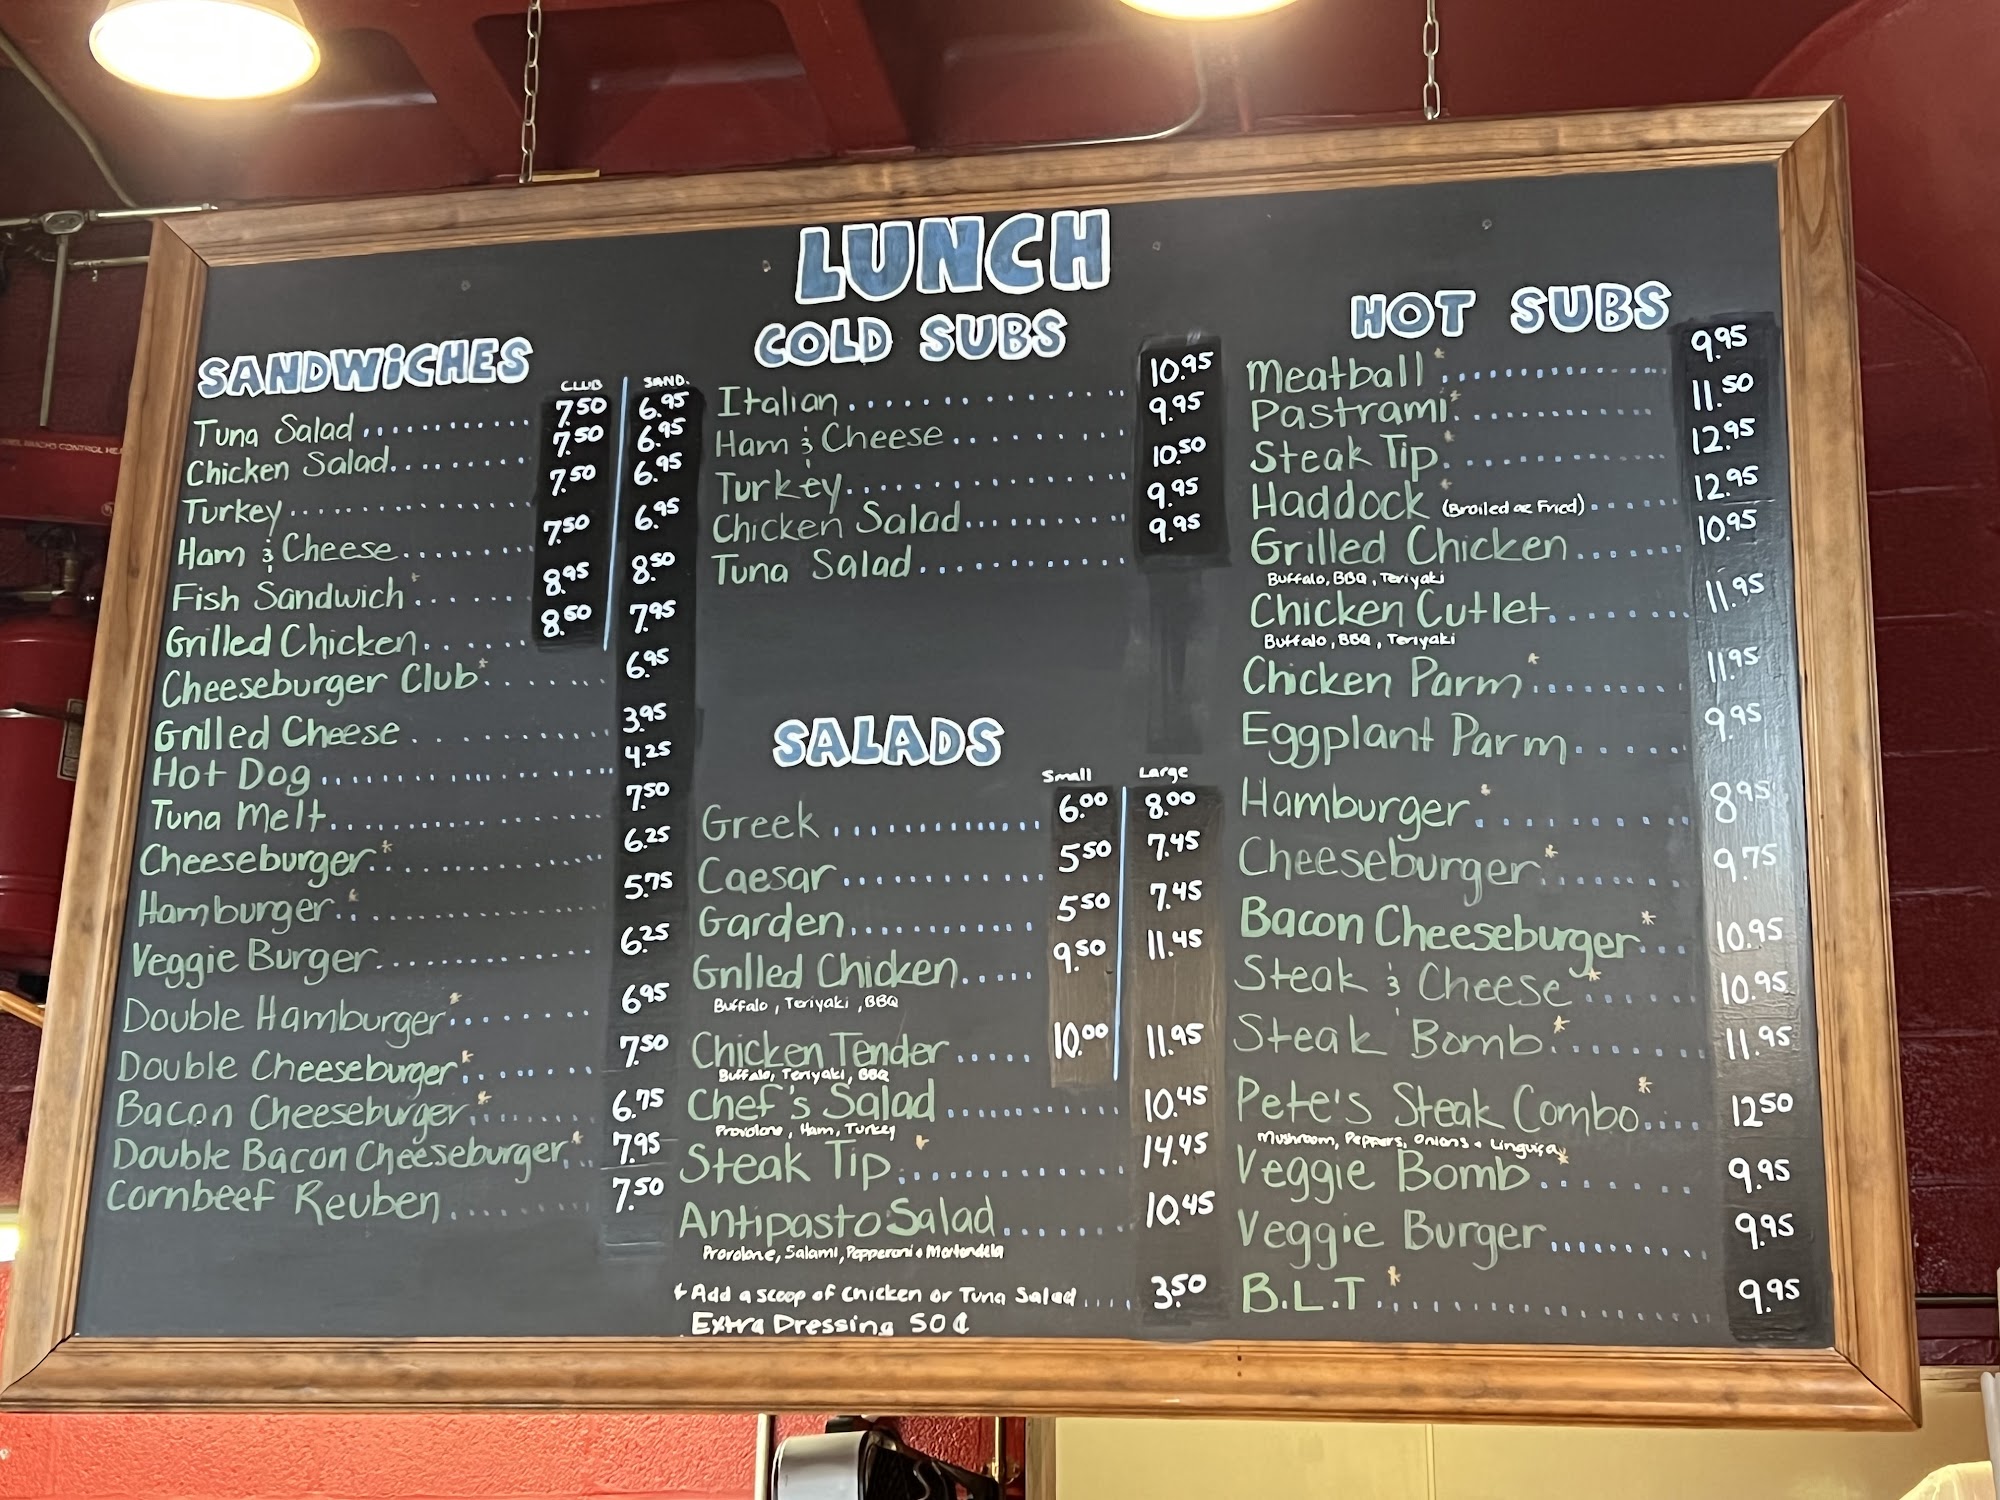 LUNCH
SANDWiCHES
CLUB SAND.
Tuna Salad............ 7.50 6.95
Chicken Salad.......... 7.50 6.95
Turkey................. 7.50 6.95
Ham & Cheese.......... 7.50 6.95
Fish Sandwich*....... 8.95 8.50
Grilled Chicken...... 8.50 7.95
Cheeseburger Club*....... 6.95
Grilled Cheese........... 3.95
Hot Dog.................. 4.25
Tuna Melt................ 7.50
Cheeseburger*............ 6.25
Hamburger*............... 5.75
Veggie Burger............ 6.25
Double Hamburger*........ 6.95
Double Cheeseburger*...... 7.50
Bacon Cheeseburger*...... 6.75
Double Bacon Cheeseburger*... 7.95
Cornbeef Reuben......... 7.50
COLD SUBS
Italian............... 10.95
Ham & Cheese......... 9.95
Turkey............... 10.50
Chicken Salad.......... 9.95
Tuna Salad............ 9.95
SALADS
Small Large
Greek............... 6.00 8.00
Caesar.............. 5.50 7.45
Garden............. 5.50 7.45
Grilled Chicken..... 9.50 11.45
Buffalo, Teriyaki, BBQ
Chicken Tender..... 10.00 11.95
Buffalo, Teriyaki, BBQ
Chef's Salad............ 10.45
Provolone, Ham, Turkey
Steak Tip*............. 14.45
Antipasto Salad........ 10.45
Provolone, Salami, Pepperoni & Mortadella
* Add a scoop of Chicken or Tuna Salad.... 3.50
Extra Dressing 50¢
HOT SUBS
Meatball*.............. 9.95
Pastrami*............. 11.50
Steak Tip*............. 12.95
Haddock* (Broiled or Fried)...... 12.95
Grilled Chicken....... 10.95
Buffalo, BBQ, Teriyaki
Chicken Cutlet........ 11.95
Buffalo, BBQ, Teriyaki
Chicken Parm*........ 11.95
Eggplant Parm...... 9.95
Hamburger*.......... 8.95
Cheeseburger*........ 9.75
Bacon Cheeseburger*... 10.95
Steak & Cheese*...... 10.95
Steak Bomb*......... 11.95
Pete's Steak Combo*.... 12.50
Mushroom, Peppers, Onions & Linguiça
Veggie Bomb*........ 9.95
Veggie Burger......... 9.95
B.L.T*................. 9.95